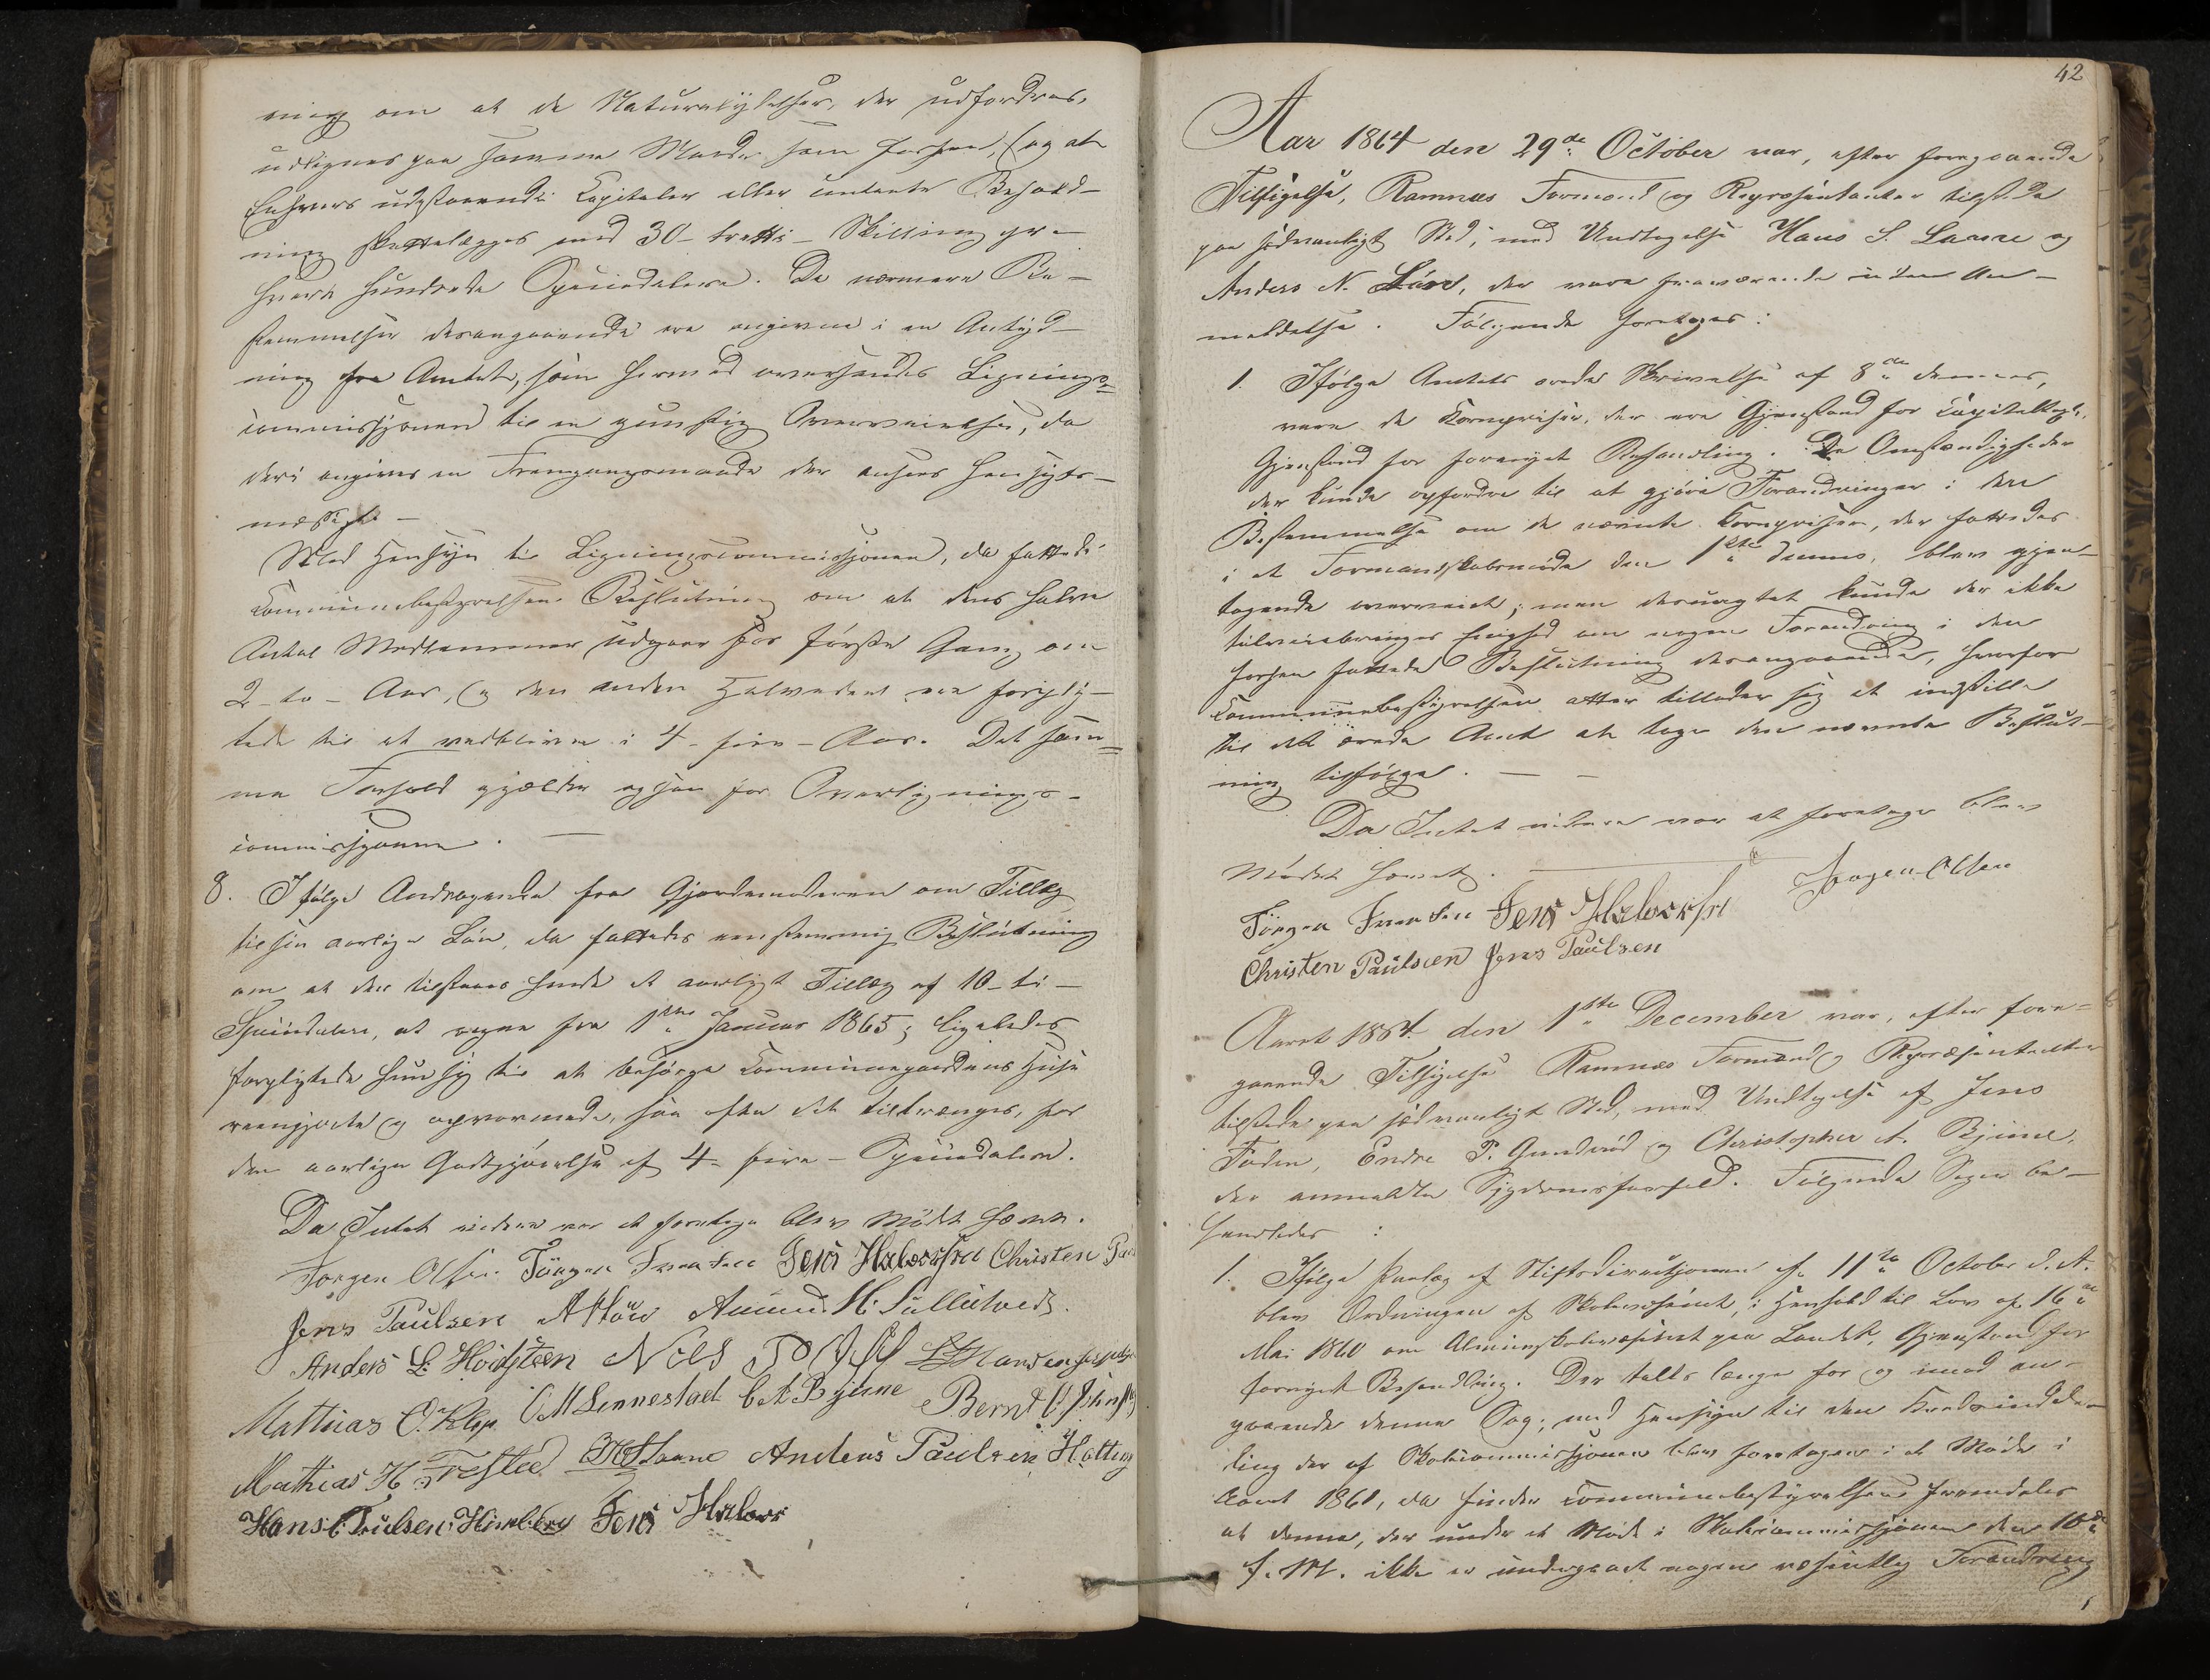 ning om at de Naturalydelser, der udfordres,
udlignes paa samme Maade som forhen, (og at
Enhvers udestaaende Capitaler eller Behold-
ning skattelægges med 30 - tretti - Skilling pr.
hvert hundrede Speciedalere. De nærmere Be-
stemmelser desangaaende ere angivne i en Antyd-
ning fra Amtet, som hermed oversendes Lignings-
commissjonen til en gunstig Overveielse, da
deri angives en Fremgangsmaade der ansees hensigts-
mæssigt. -
Med Hensyn til Ligningscommissjonen, da fattede
Communebestyrelsen Beslutning om at dens halve
Antal Medlemmer udgaar for første Gang om
2 - to - Aar, og den anden Halvdel ere forplig-
tede til at vedblive i 4 - fire - Aar. Det sam-
me Forhold gjælder ogsaa for Overlignings-
commissjonen. —
8. Ifølge Andragende fra Gjordemoderen om Tillæg
til sin aarlige Løn, da fattedes eenstemmig Beslutning
om at der tilstaaes hende et aarligt Tillæg af 10 - ti -
Speciedalere, at regne fra 1ste Januar 1865; ligeledes
forpligtede hun sig til at besørge Communegaardens Huse
reengjorte og opvarmede, saa ofte det tiltrænges, for
den aarlige Godtgjørelse af 4 - fire - Speciedalere.
Da Intet videre var at foretage blev Mødet hævet.
Jørgen Olsen Jörgen Frantsen Jens Christen
Jens Paulsen Amund H. Sullutvedt.
Anders L. Höidsteen Niels
Mathias O. Klop O M Linnestad C A Bjune Bernt
Mathias H. Anders Paulsen
Hans Himberg Jens
42
Aar 1864 den 29de October var, efter foregaaende
Tilsigelse, Ramnæs Formænd og Repræsentanter tilstede
paa sædvanligt Sted, med Undtagelse Hans S. Laane og
Anders N. Löve, der vare fraværende uden An-
meldelse. Følgende foretoges:
1. Ifølge Amtets ærede Skrivelse af 8de dennes,
vare de Kornpriser, der ere Gjenstand for Capiteltaxt,
Gjenstand for fornyet Behandling. De Omstændigheder
der kunde opfordre til at gjøre Forandringer i den
Bestemmelse om de nævnte Kornpriser, der fattedes
i et Formandskabsmøde den 1ste dennes, blev gjen-
tagende overveiet; men desuagtet kunde der ikke
tilveiebringes Enighed om nogen Forandring i den
forhen fattede Beslutning desangaaende, hvorfor
Communebestyrelsen atter tillader sig at indstille
til det ærede Amt at tage den nævnte Beslut-
ning tilfølge. — —
Da Intet videre var at foretage blev
Mødet hævet. —
Jörgen Frantsen Jens Jørgen Olsen
Christen Paulsen Jens Paulsen
Aaret 1864 den 1ste December var, efter fore-
gaaende Tilsigelse Ramnæs Formænd og Repræsentanter
tilstede paa sædvanligt Sted, med Undtagelse af Jens
Foden, Endre P. Gundersrød og Christopher A. Bjune,
der anmeldte Sygdomsforfald. Følgende Sager be-
handledes :
1. Ifølge Paalæg af Stiftsdirectjonen af 11te October d. A.
blev Ordningen af Skolevæsenet, i Henhold til Lov af 16de
Mai 1860 om Almueskolevæsenet paa Landet, Gjenstand for
fornyet Behandling. Der taltes længe for og imod an-
gaaende denne Sag; med Hensyn til den Kredsinddee-
ling der af Skolecommissjonen blev foretagen i et Møde i
Aaret 1861, da finder Communebestyrelsen fremdeles
at denne, der under et Møde i Skolecommissjonen den 10de
f. M. ikke er undergaaet nogen væsentlig Forandring